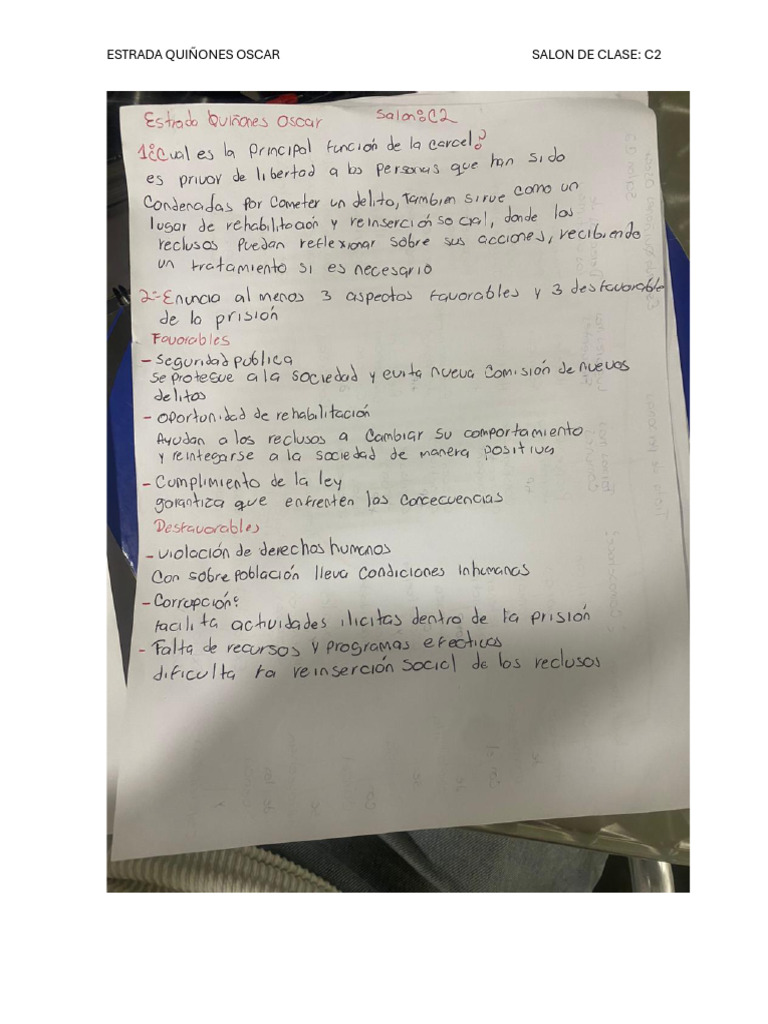 ESTRADA QUIÑONES OSCAR SALON DE CLASE: C2
Estrada Quiñones Oscar Salon: C2
1¿Cual es la Principal función de la carcel?
es privar de libertad a las personas que han sido
Condenadas por cometer un delito, Tambien sirve como un
lugar de rehabilitación y reinserción social, donde los
reclusos puedan reflexionar sobre sus acciones, recibiendo
un tratamiento si es necesario
2-Enuncia al menos 3 aspectos favorables y 3 desfavorable
de la prisión
Favorables
- Seguridad publica
se protegue a la sociedad y evita nueva comisión de nuevos
delitos
- oportunidad de rehabilitación
Ayudan a los reclusos a cambiar su comportamiento
y reintegarse a la sociedad de manera positiva
- Cumplimiento de la ley
garantiza que enfrenten las concecuencias
Desfavorables
- violación de derechos humanos
Con sobre población lleva condiciones inhumanas
- Corrupción:
facilita actividades ilicitas dentro de la prisión
- Falta de recursos y programas efectivos
dificulta la reinserción social de los reclusos